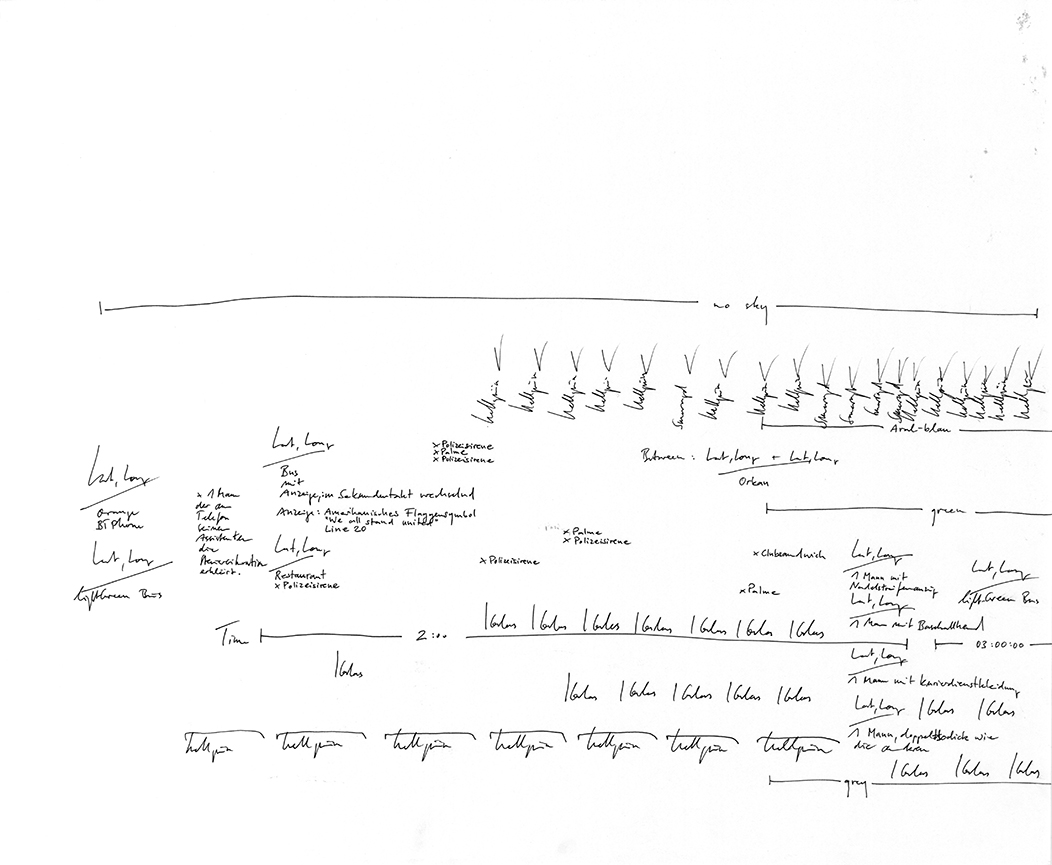 no sky
hellgrün hellgrün hellgrün hellgrün hellgrün Smaragd hellgrün hellgrün hellgrün Smaragd Smaragd Smaragd Smaragd hellgrün hellgrün hellgrün hellgrün hellgrün hellgrün
blau
Lat, Long
Orange
BT Phone
Lat, Long
LightGreen Bus
x 1 Mann
der am
Telefon
seinem
Assistenten
die
erklärt.
Lat, Long
Bus
mit
Anzeige, im Sekundentakt wechselnd
Anzeige: Amerikanisches Flaggensymbol
"We all stand united"
Line 20
Lat, Long
Restaurant
x Polizeisirene
x Polizeisirene
x Palme
x Polizeisirene
x Polizeisirene
x Palme
x Polizeisirene
Between: Lat, Long + Lat, Long
Orkan
green
x Clubsandwich
x Palme
Lat, Long
1 Mann mit
Nadelstreifenanzug
Lat, Long
1 Mann mit Baseballhemd
Lat, Long
LightGreen Bus
Time 2:00 03:00:00
1 Glas 1 Glas 1 Glas 1 Glas 1 Glas 1 Glas 1 Glas
1 Glas
Lat, Long
1 Mann mit Kurierdienstkleidung
1 Glas 1 Glas 1 Glas 1 Glas 1 Glas
Lat, Long 1 Glas 1 Glas
1 Mann, doppelt so dick wie
die anderen
hellgrün hellgrün hellgrün hellgrün hellgrün hellgrün hellgrün
1 Glas 1 Glas 1 Glas
grey